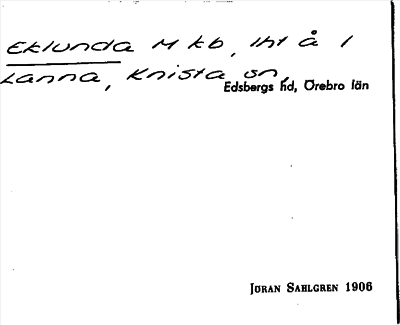 Eklunda M kb, iht å 1
Kanna, Knista sn,
Edsbergs hd, Örebro län
Jöran Sahlgren 1906